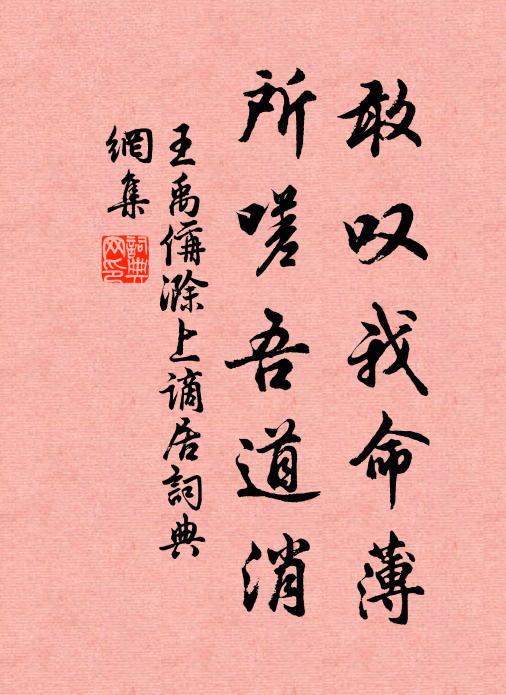 敢叹我命薄
所嗟吾道消
王禹偁滁上谪居詞典
網集
詞典网印